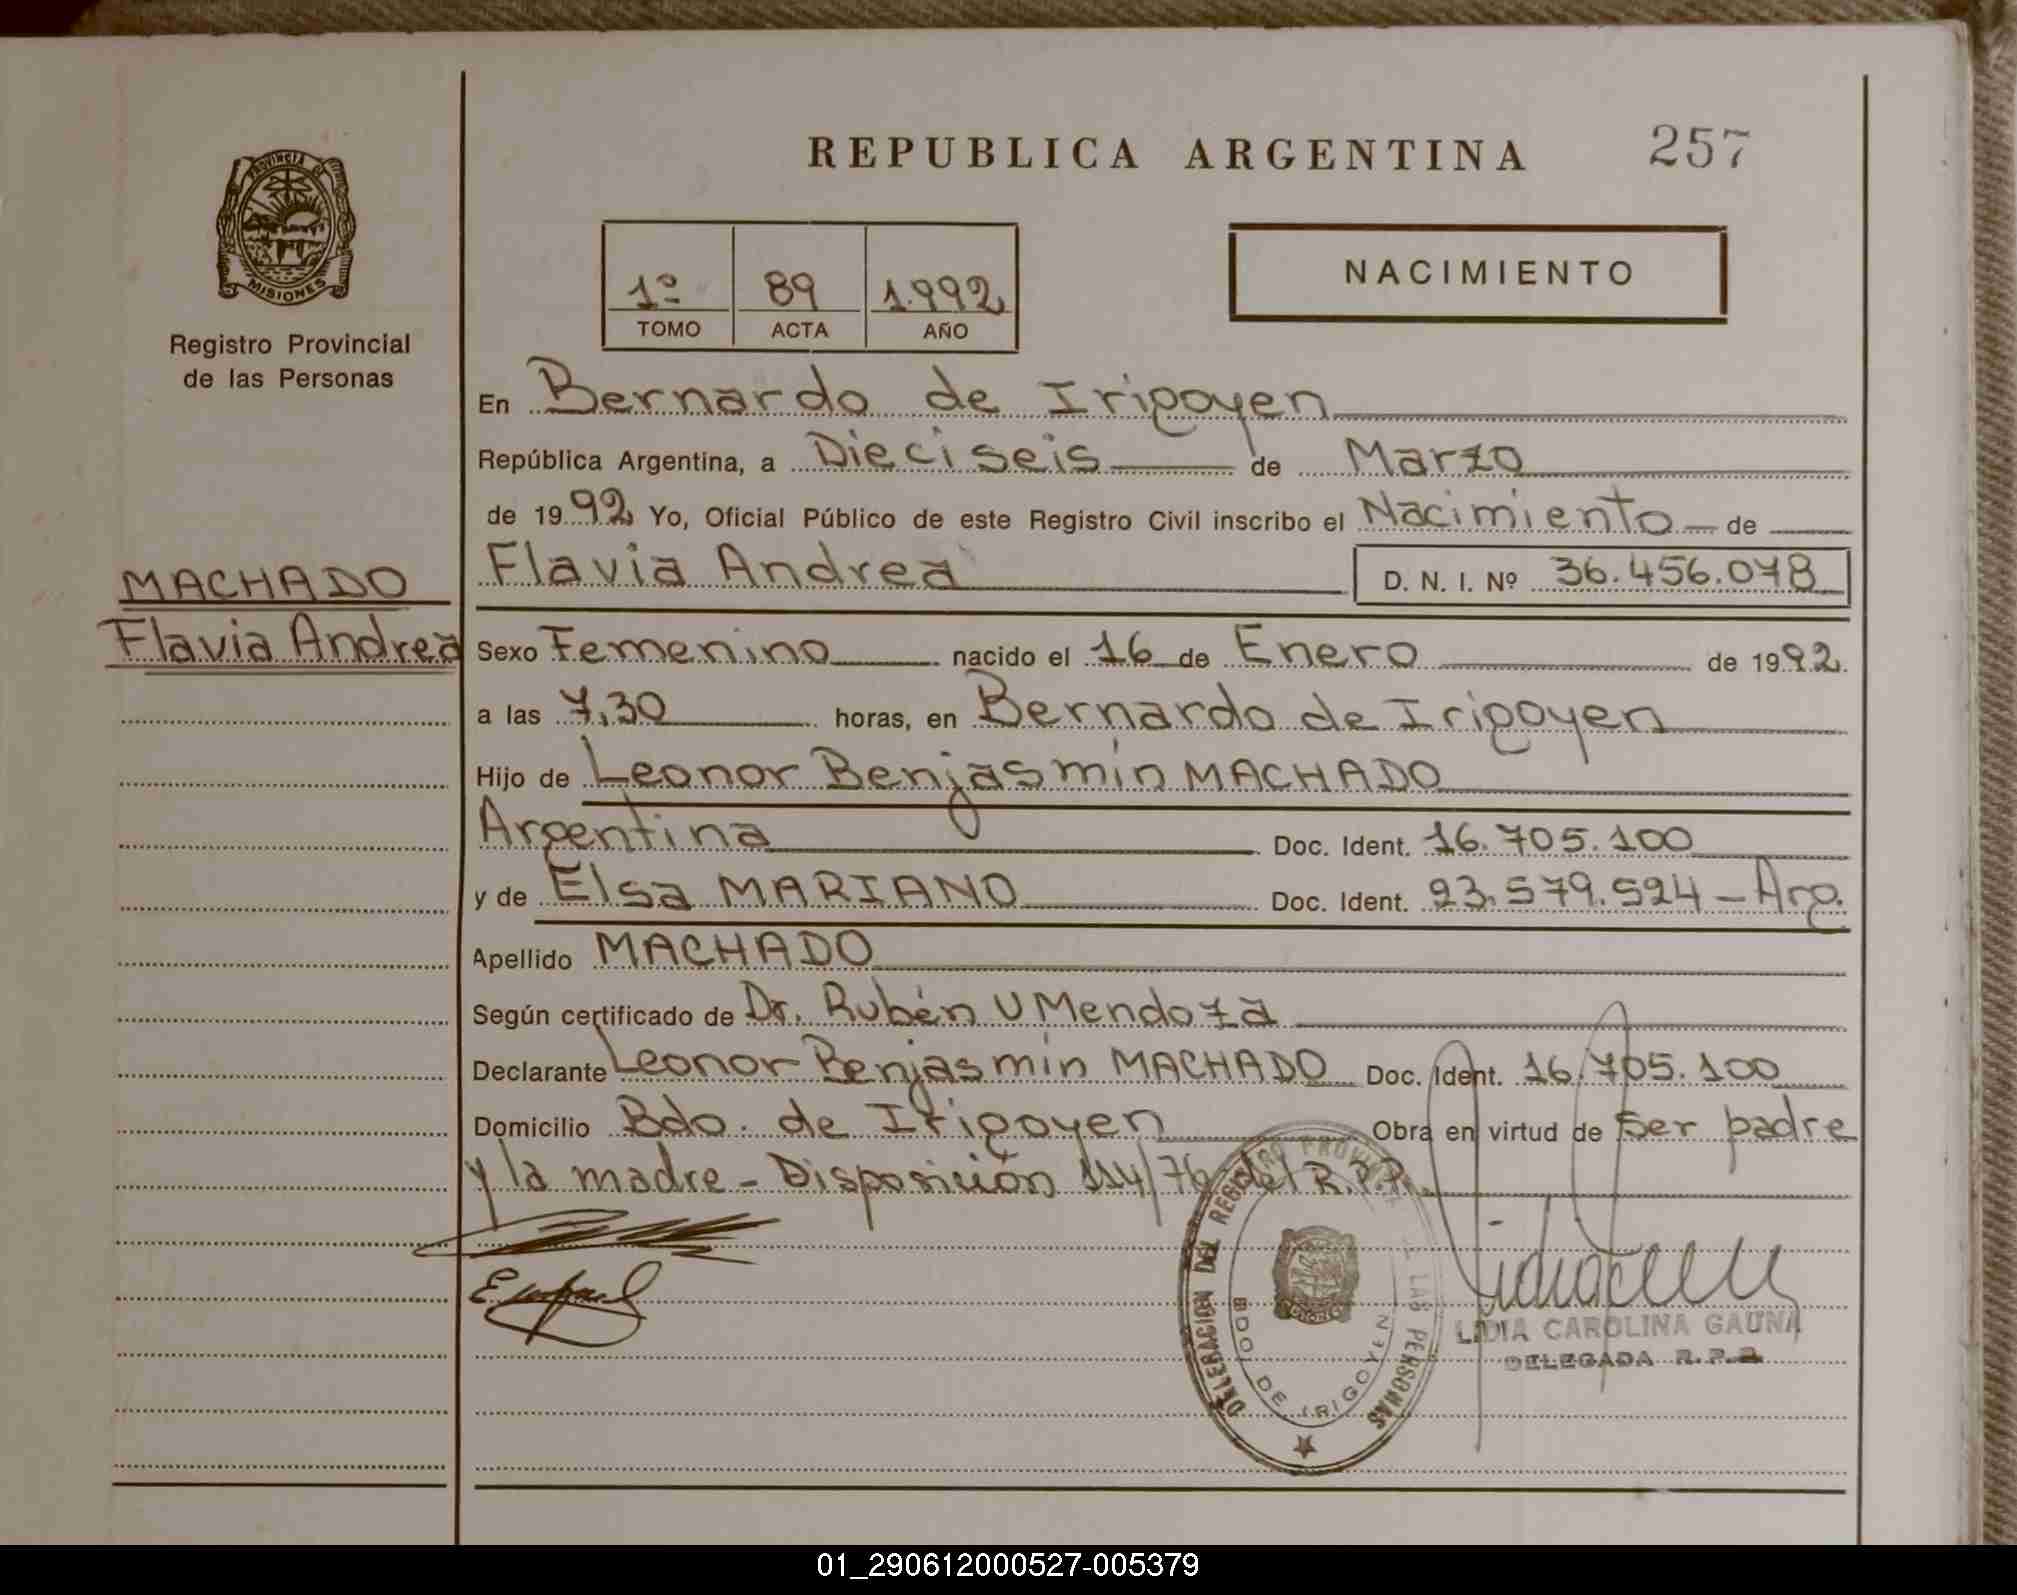 REPUBLICA ARGENTINA 257
PROVINCIA DE
MISIONES
Registro Provincial
de las Personas
1º 89 1.992
TOMO ACTA AÑO
NACIMIENTO
En Bernardo de Irigoyen
República Argentina, a Dieciseis de Marzo
de 1992 Yo, Oficial Público de este Registro Civil inscribo el Nacimiento de
Flavia Andrea D. N. I. Nº 36.456.078
MACHADO
Flavia Andrea
Sexo Femenino nacido el 16 de Enero de 1992.
a las 7,30 horas, en Bernardo de Irigoyen
Hijo de Leonor Benjasmín MACHADO
Argentina Doc. Ident. 16.705.100
y de Elsa MARIANO Doc. Ident. 23.579.524 - Arg.
Apellido MACHADO
Según certificado de Dr. Rubén U Mendoza
Declarante Leonor Benjasmín MACHADO Doc. Ident. 16.705.100
Domicilio Bdo. de Irigoyen Obra en virtud de ser padre
y la madre - Disposición 114/76 del R.P.P.
DELEGACION DEL REGISTRO PROVINCIAL LAS PERSONAS
BDO. DE IRIGOYEN
LIDIA CAROLINA GAUNA
DELEGADA R.P.P.
01_290612000527-005379